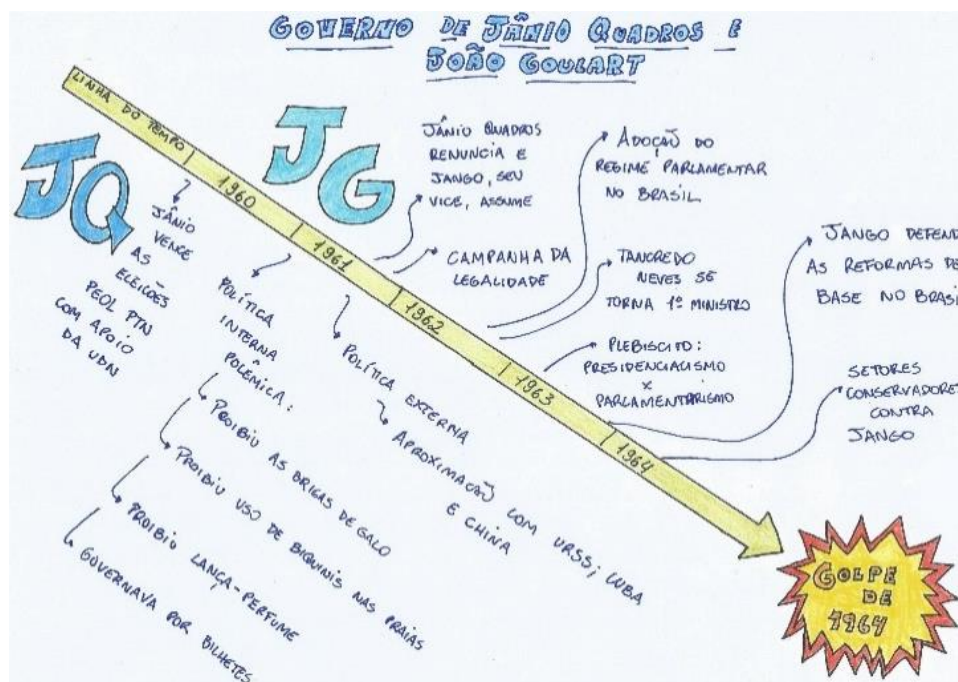 GOVERNO DE JÂNIO QUADROS E
JOÃO GOULART
LINHA DO TEMPO
JQ
JG
1960
1961
1962
1963
1964
JÂNIO
VENCE
AS
ELEIÇÕES
PEOL PTN
COM APOIO
DA UDN
POLÍTICA
INTERNA
POLÊMICA:
PROIBIU AS BRIGAS DE GALO
PROIBIU USO DE BIQUINIS NAS PRAIAS
PROIBIU LANÇA-PERFUME
GOVERNAVA POR BILHETES
POLÍTICA EXTERNA
APROXIMAÇÃO COM URSS; CUBA
E CHINA
JÂNIO QUADROS
RENUNCIA E
JANGO, SEU
VICE, ASSUME
CAMPANHA DA
LEGALIDADE
ADOÇÃO DO
REGIME PARLAMENTAR
NO BRASIL
TANCREDO
NEVES SE
TORNA 1º MINISTRO
PLEBISCITO:
PRESIDENCIALISMO
X
PARLAMENTARISMO
JANGO DEFEND
AS REFORMAS DE
BASE NO BRASI
SETORES
CONSERVADORES
CONTRA
JANGO
GOLPE
DE
1964